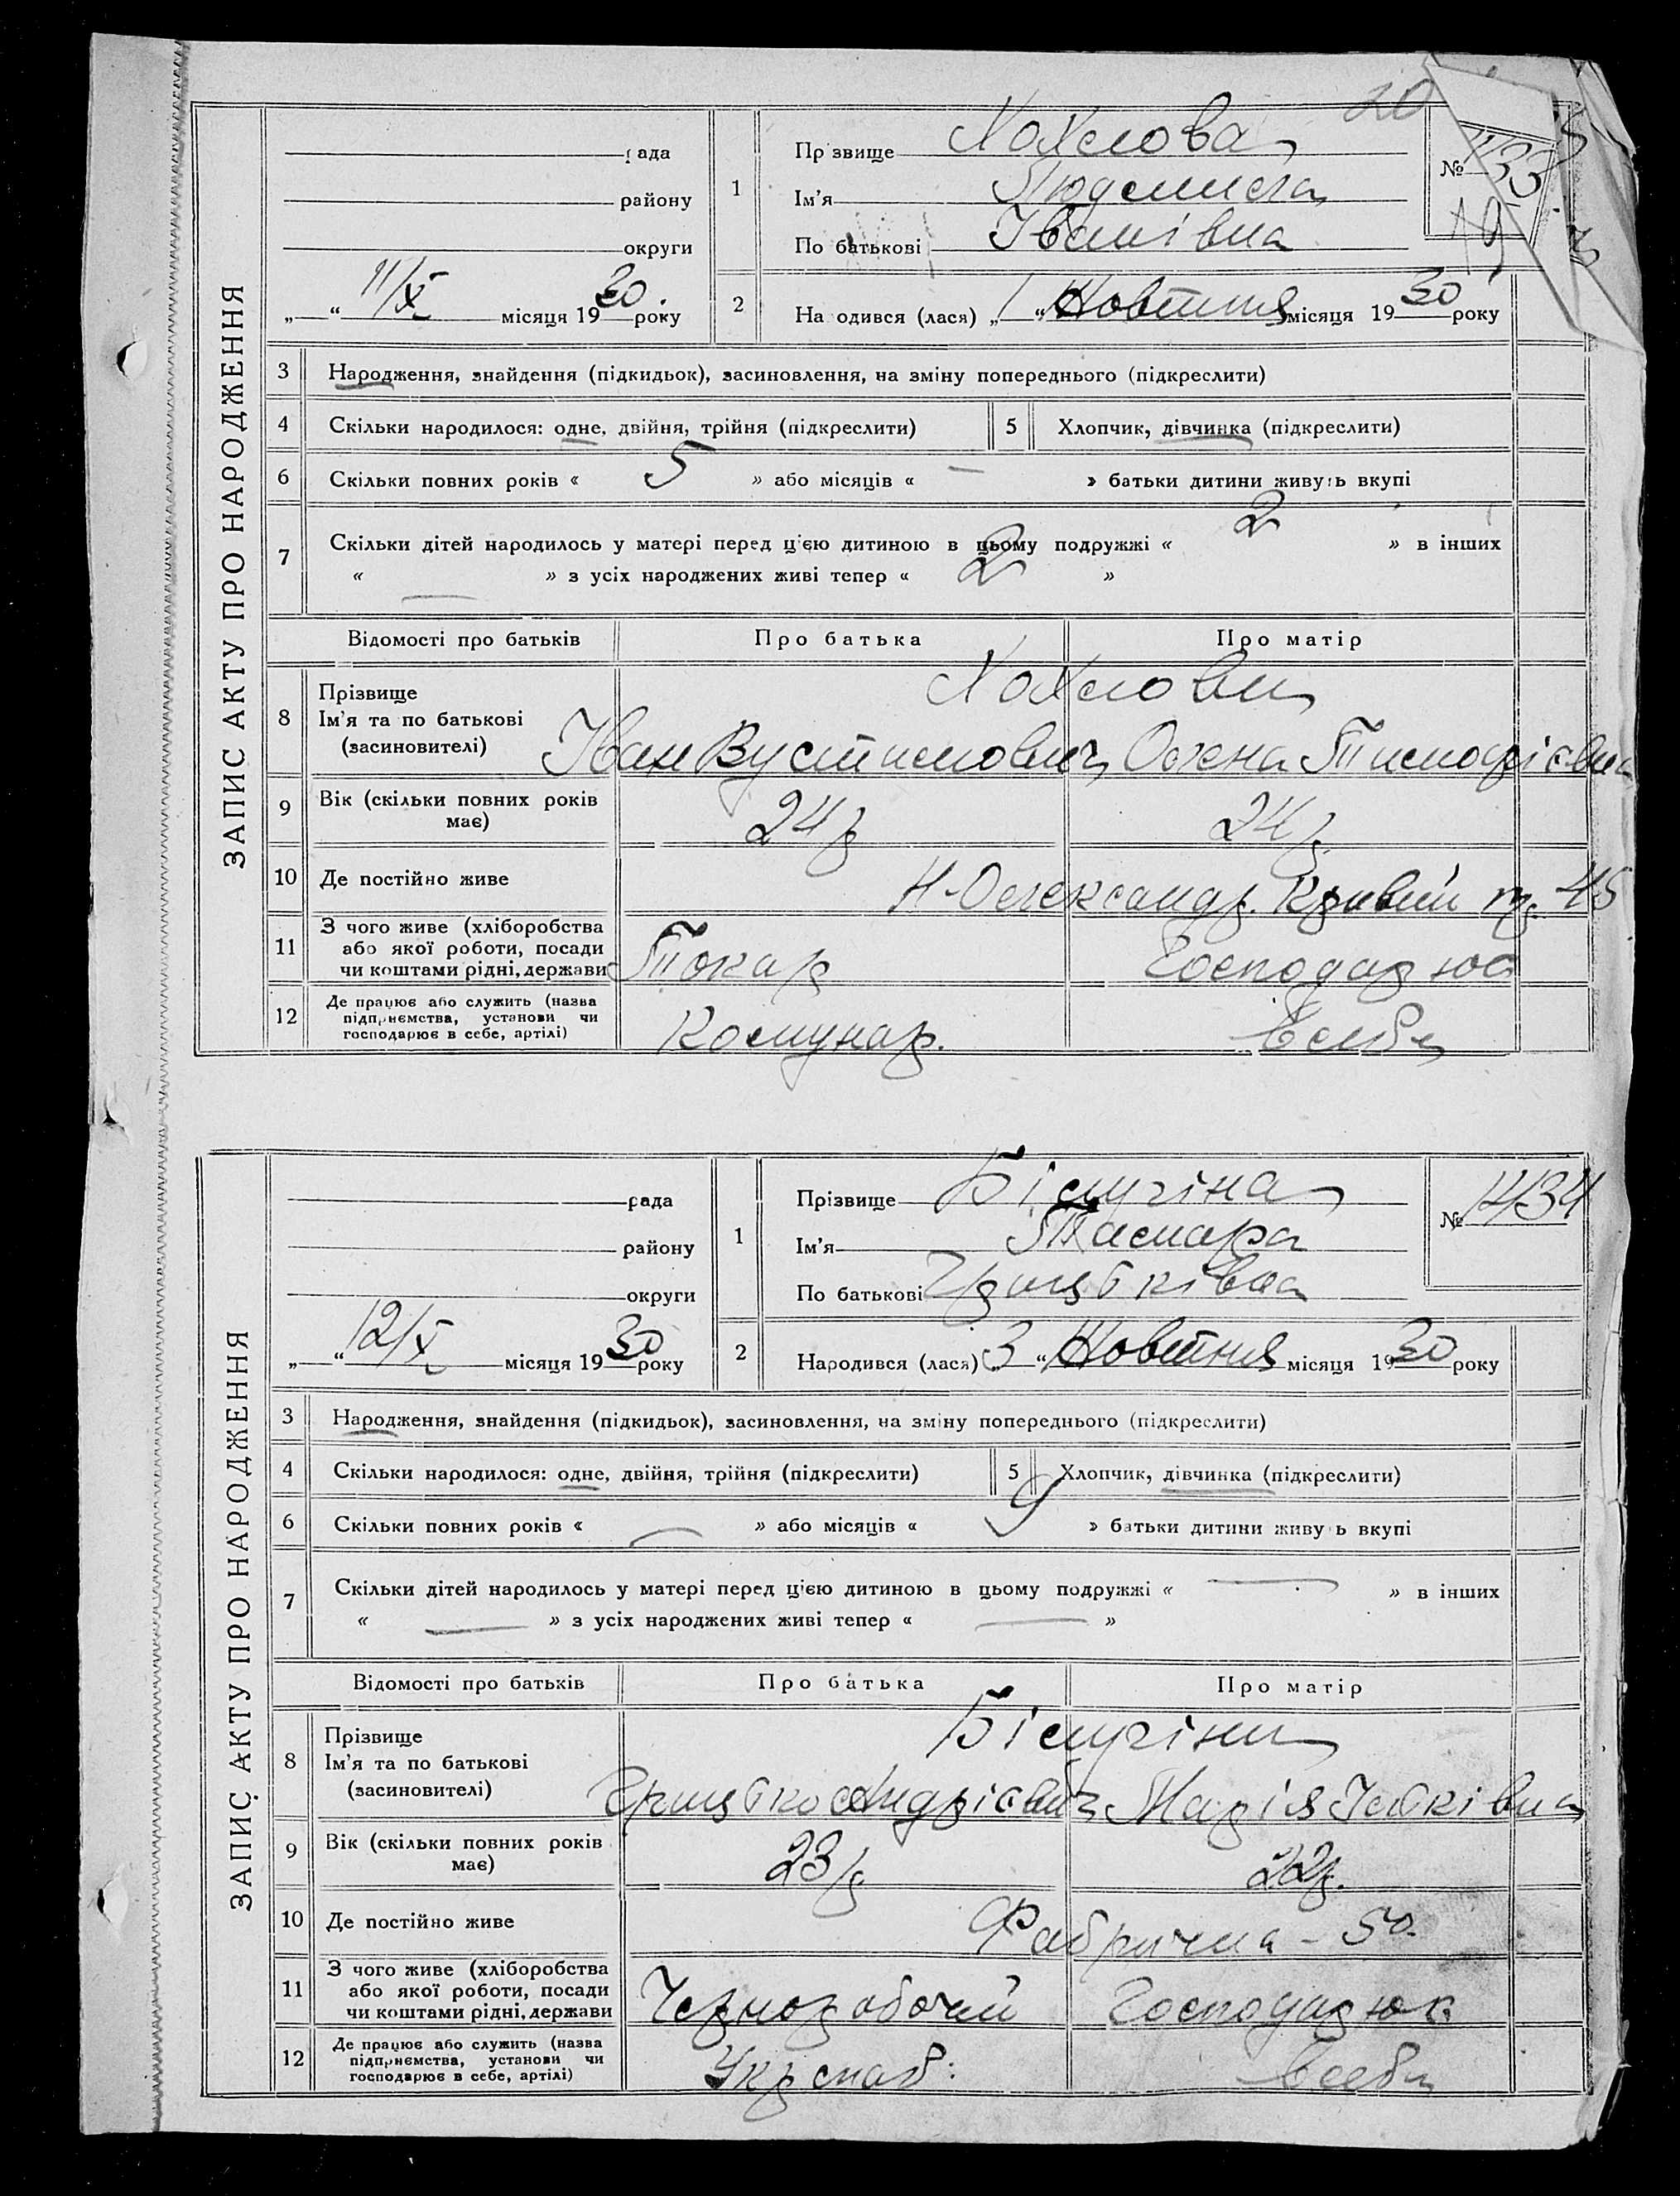 ЗАПИС АКТУ ПРО НАРОДЖЕННЯ
20
рада
району
округи
„ “ 11/X місяця 1930. року
1 Прізвище Хохлова
Ім'я Людмила
По батькові Іванівна
№ 1433
2 Народився (лася) „1“ Жовтня місяця 1930 року
3 Народження, знайдення (підкидьок), засиновлення, на зміну попереднього (підкреслити)
4 Скільки народилося: одне, двійня, трійня (підкреслити) 5 Хлопчик, дівчинка (підкреслити)
6 Скільки повних років « 5 » або місяців « — » батьки дитини живуть вкупі
7 Скільки дітей народилось у матері перед ц'єю дитиною в цьому подружжі « 2 » в інших
« — » з усіх народжених живі тепер « 2 »
Відомості про батьків Про батька Про матір
8 Прізвище Хохлови
Ім'я та по батькові
(засиновителі) Іван Вустимович Олена Тимофієвна
9 Вік (скільки повних років має) 24 р 24 р.
10 Де постійно живе Н-Олександр. Кривий пр. 45
11 З чого живе (хліборобства або якої роботи, посади чи коштами рідні, держави Токар Господарюе
12 Де працює або служить (назва підприємства, установи чи господарює в себе, артілі) Комунар. Всебе
ЗАПИС АКТУ ПРО НАРОДЖЕННЯ
рада
району
округи
„ “ 12/X місяця 1930 року
1 Прізвище Бічугіна
Ім'я Тамара
По батькові Грицьківна
№ 1434
2 Народився (лася) „3“ Жовтня місяця 1930 року
3 Народження, знайдення (підкидьок), засиновлення, на зміну попереднього (підкреслити)
4 Скільки народилося: одне, двійня, трійня (підкреслити) 5 Хлопчик, дівчинка (підкреслити)
6 Скільки повних років « — » або місяців « 9 » батьки дитини живуть вкупі
7 Скільки дітей народилось у матері перед ц'єю дитиною в цьому подружжі « — » в інших
« — » з усіх народжених живі тепер « — »
Відомості про батьків Про батька Про матір
8 Прізвище Бічугіни
Ім'я та по батькові
(засиновителі) Грицько Андрієвич Марія Яківна
9 Вік (скільки повних років має) 23 р. 22 р.
10 Де постійно живе Фабрична - 50.
11 З чого живе (хліборобства або якої роботи, посади чи коштами рідні, держави Чернорабочий Господарює
12 Де працює або служить (назва підприємства, установи чи господарює в себе, артілі) Укрснаб: Всебе